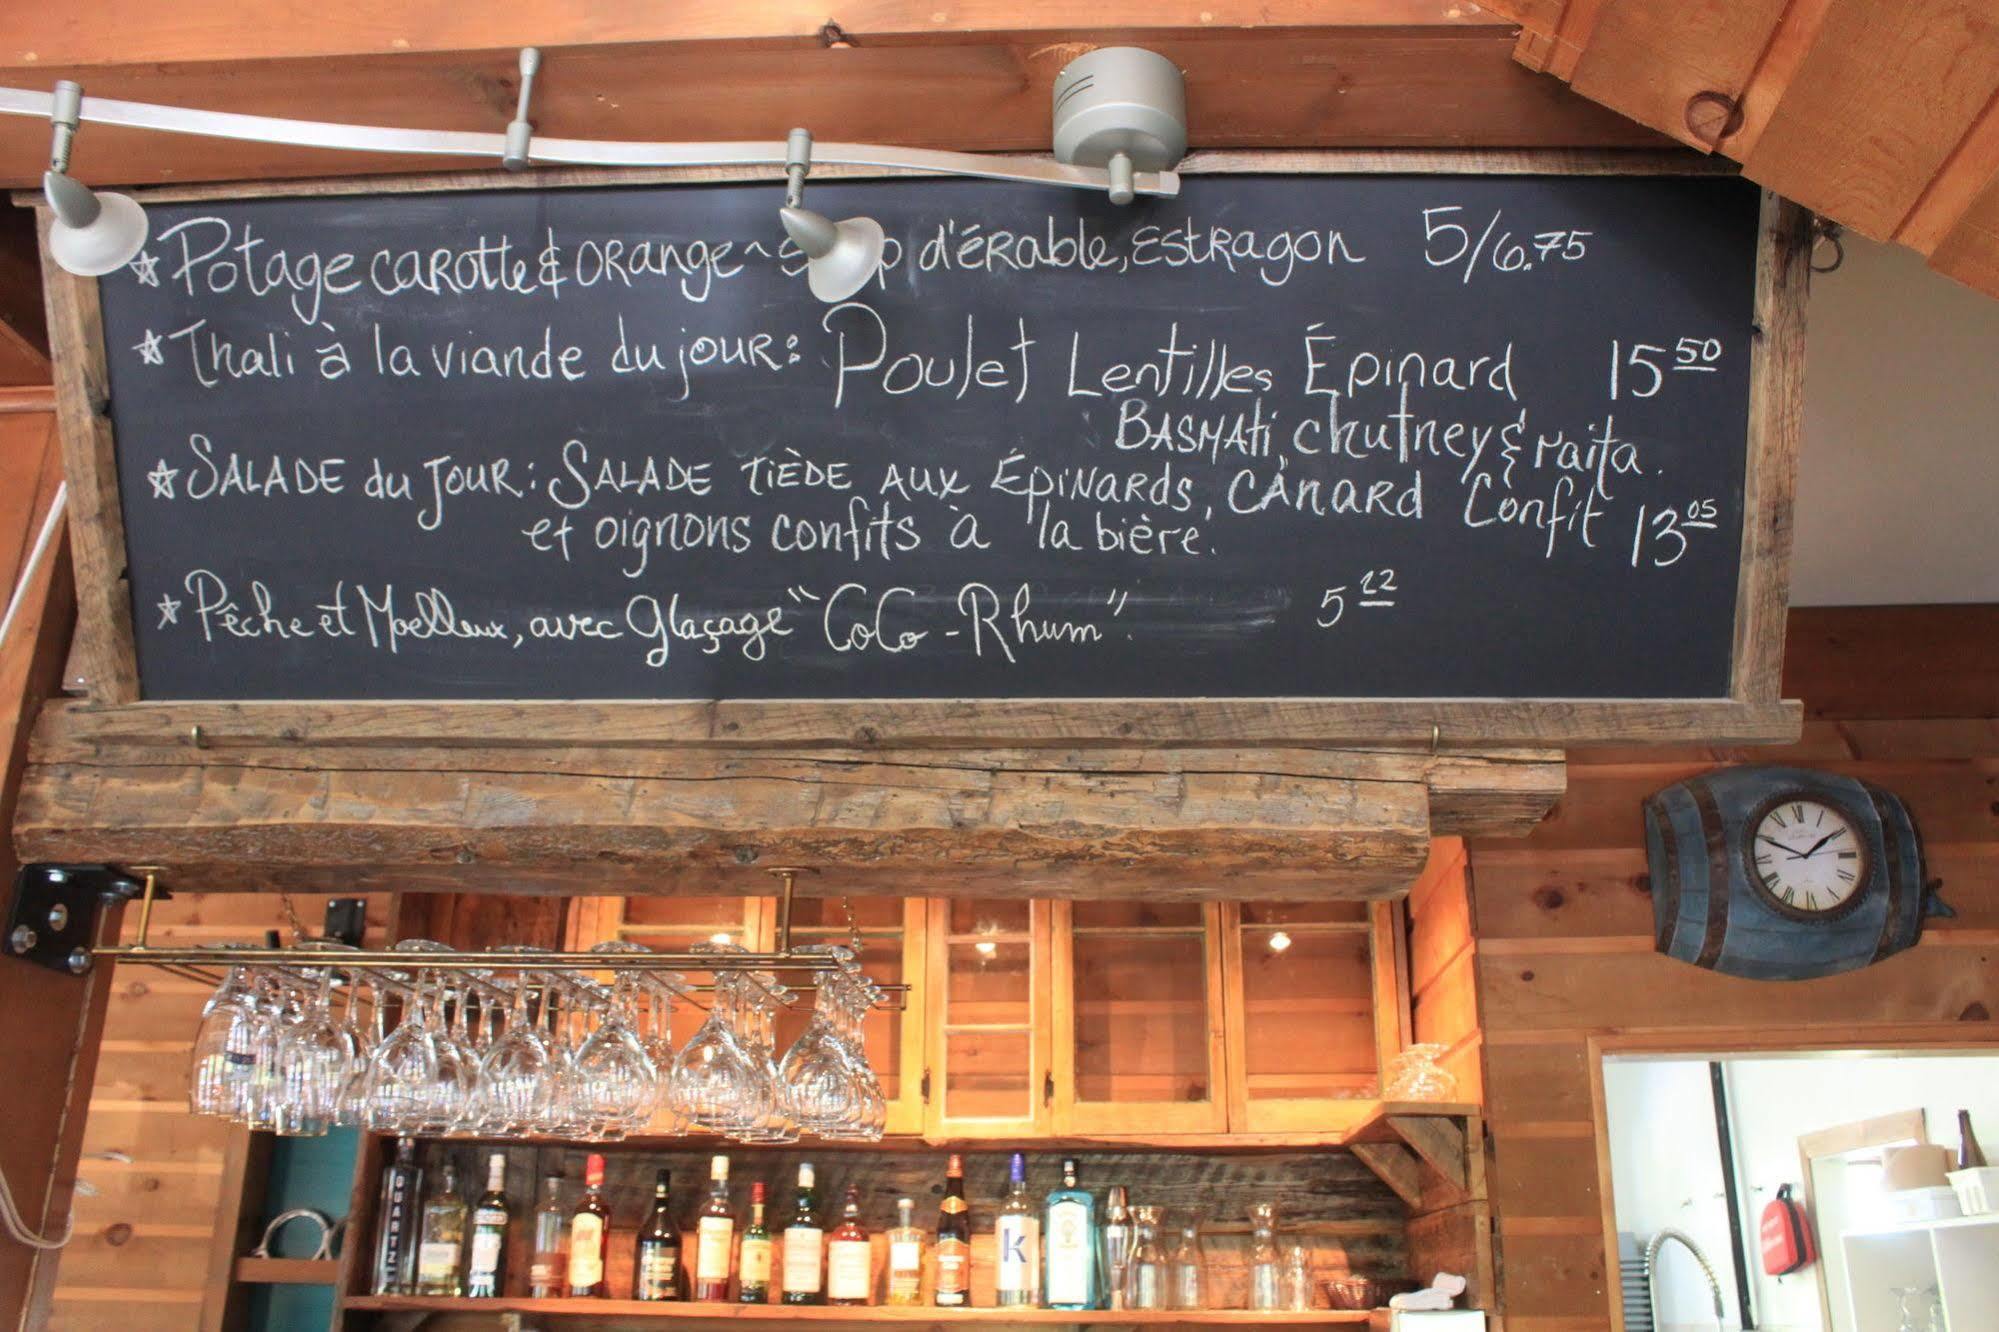 Potage carotte & orange ~ d'érable, Estragon 5/6.75
Thali à la viande du jour: Poulet Lentilles Épinard 15 50
BASMAti, chutney & raita.
SALADE du JOUR: SALADE TIÈDE AUX ÉPINARDS, CANARD Confit 13 05
et oignons confits à la bière.
Pêche et Moelleux, avec Glaçage "CoCo-Rhum". 5 22
QUARTZ
k